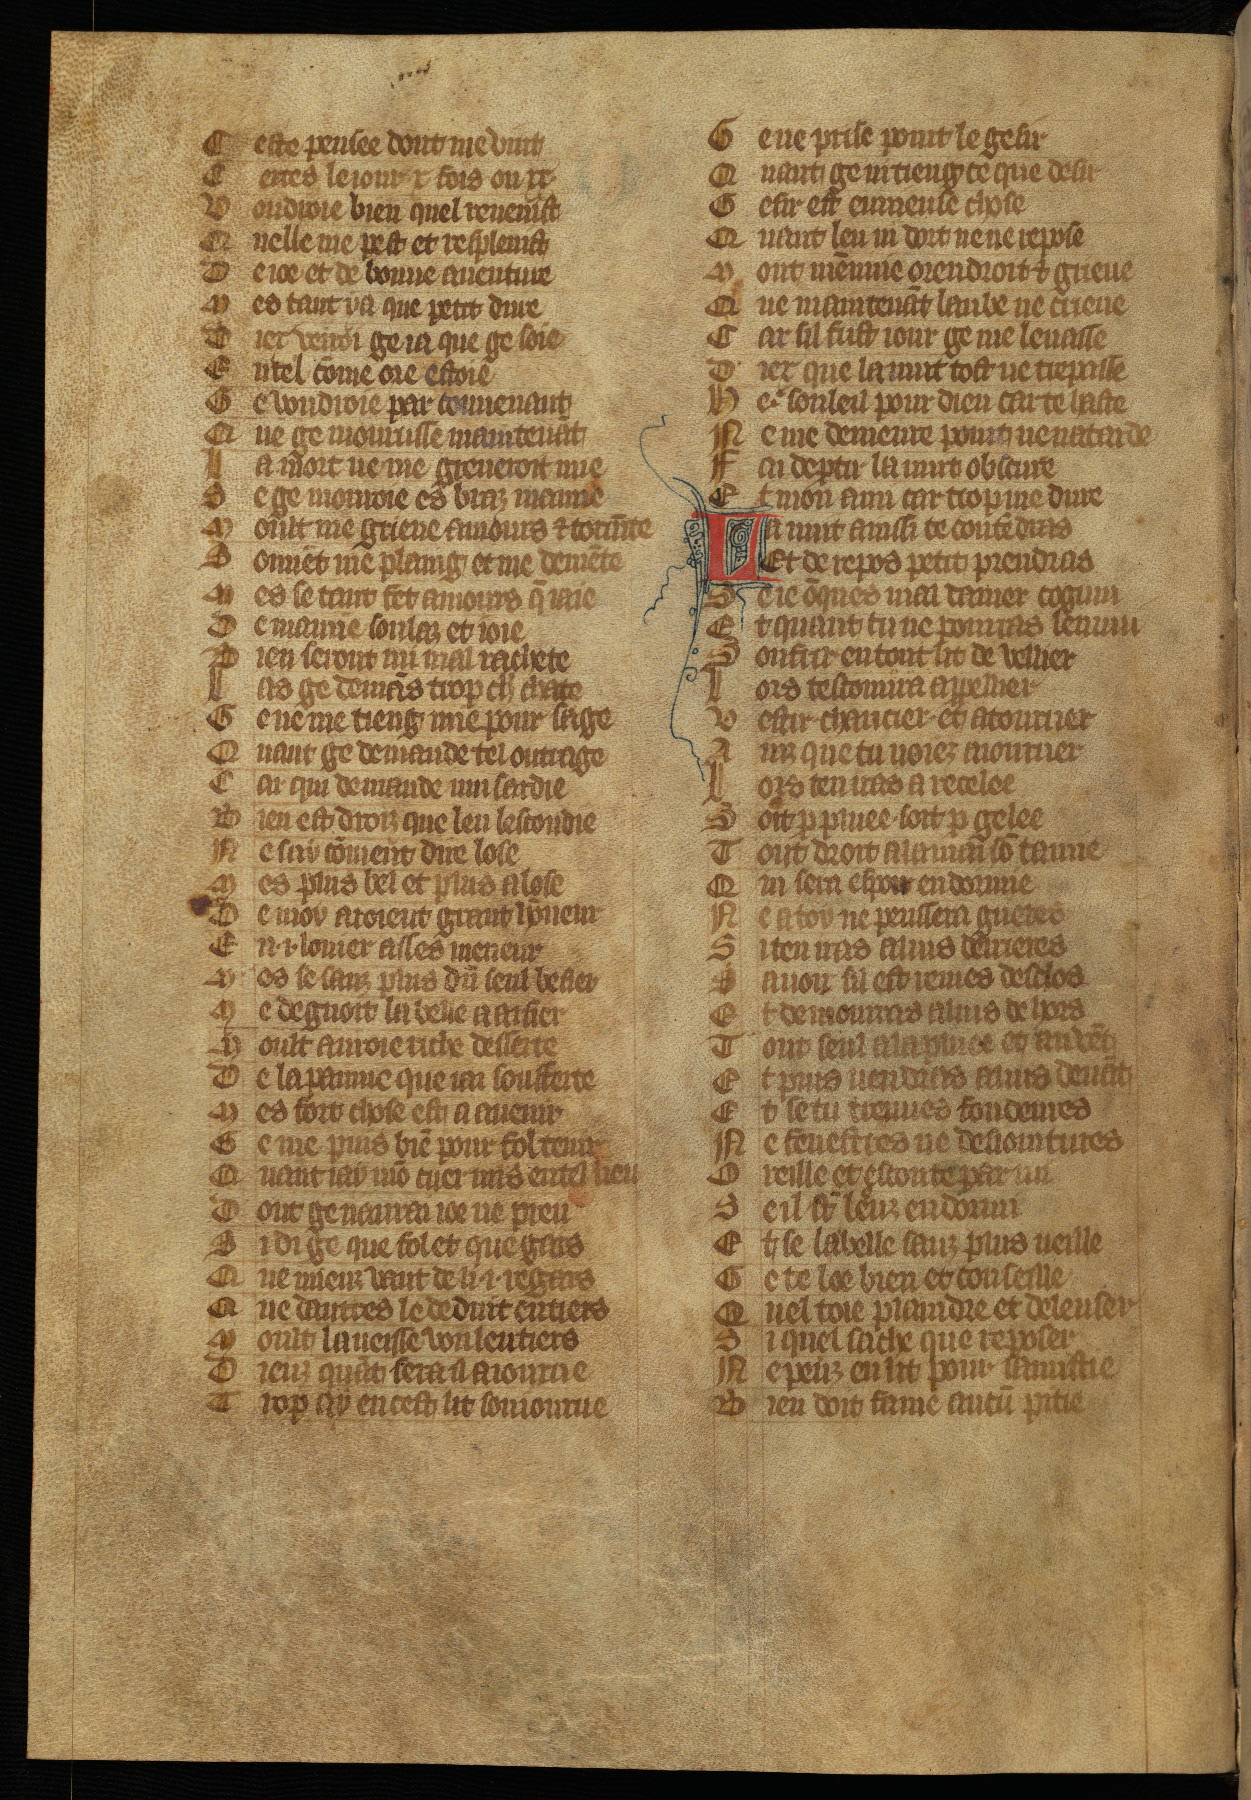 C este pensee dont me vint
C ertes le iour x fois ou xx
V oudroie bien quel reuenist
Q uelle me pest et resplenist
D e ioe et de bonne auenture
M es tant va que petit dure
D iex verroi ge ia que ge soie
E ntel cōme ore estoie
G e voudroie par conuenant
Q ue ge mourisse maintenāt
L a mort ne me greueroit mie
S e ge mouroie es braz mamie
M oult me grieue amours & tourm̄te
S ouuēt me plaing et me demēte
M es se tant fet amours q̄ iaie
D e mamie soulaz et ioie
B ien seront mi mal rachete
L as ge demāns trop chier chate
G e ne me tieng mie pour sage
Q uant ge demande tel outrage
C ar qui demande musardie
B ien est droiz que leu lescondie
N e say cōment dire lose
M es plus bel et plus alose
D e moy aroient grant hōneur
E n .i. louier asses meneur
M es se sanz plus dū seul besier
M e degnoit la belle aaisier
M oult auroie riche desserte
D e la painne que iai soufferte
M es fort chose est a auenir
G e me puis biē pour fol tenir
Q uant iay mō cuer mis en tel lieu
D ont ge naurai ioe ne preu
S i di ge que fol et que gars
Q ue mieuz vaut de li .i. regars
Q ue dautres le deduit entiers
M oult laueisse voulentiers
D ieuz quāt sera il aiournе
T rop ay en cest lit seiourne
G e ne prise point le gesir
Q uant ge ni tieng ce que desir
G esir est ennieuse chose
Q uant leu ni dort ne ne repose
M out mēnnie orendroit & grieue
Q ue maintenāt laube ne crieue
C ar sil fust iour ge me leuasse
D iex que la nuit tost ne trepasse
H e souleil pour dieu car te haste
N e me demeure point ne natarde
F ai departir la nuit obscure
E t mon anui car trop me dure
L a nuit aussi te contēdras
Et de repos petit prendras
S e ie ōques mal damer cognui
E t quant tu ne pourras lennui
S oufrir en tout lit de vellier
L ors testouura appellier
V estir chaucier et atourner
A inz que tu voiez aiourner
L ors ten iras a recelee
S oit p pluiee soit p gelee
T out droit a la maisō tamie
Q ui sera espoir endormie
N e a toy ne penssera gueres
S i ten iras a luis derrieres
S auoir sil est remes desclos
E t demourras a luis dehors
T out seul a la pluiee et au vēt
E t puis vendras a luis deuāt
E t se tu treuues fondeures
N e fenestres ne desiointures
O reille et escoute par mi
S e il se sont leuz endormi
E t se la belle sanz plus veille
G e te loe bien et conseille
Q uel toie plaindre et deleuser
S i quel sache que reposer
N e peuz en lit pour samistie
B ien doit fame aucū pitie